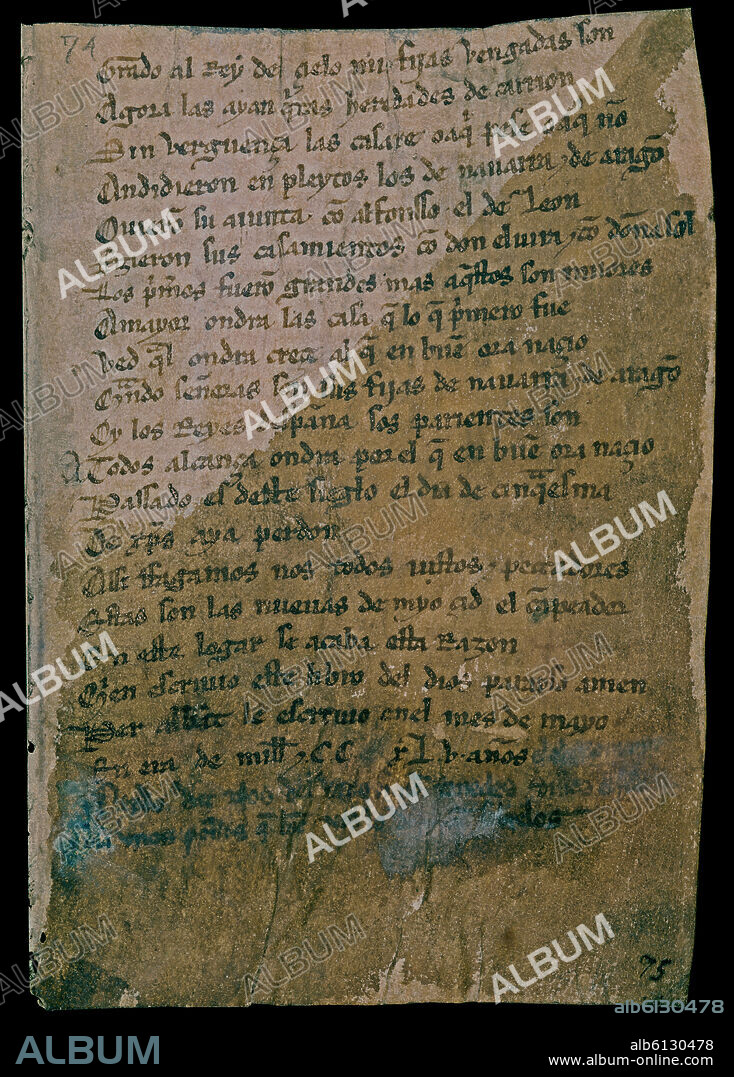 74
Grado al Rey del çielo mis fijas vengadas son
Agora las ayan q̃tas heredades de carrion
Sin verguença las casare o a q̃ pese o a q̃ nõ
Andidieron en pleytos los de nauarra ⁊ de aragõ
Ouierõ su aiunta cõ alfonsso el de Leon
fizieron sus casamientos cõ don eluira ⁊ cõ doña sol
Los p̃meros fuerõ grandes mas aq̃stos son miiores
A mayor ondra las casa q̃ lo q̃ p̃mero fue
Ved q̃l ondra creçe al q̃ en buẽ ora naçio
Quãdo señoras son sus fijas de nauarra ⁊ de aragõ
Oy los Reyes despaña sos parientes son
A Todos alcança ondra por el q̃ en buẽ ora naçio
Passado es deste sieglo el dia de cinq̃esma
De xp̃s aya perdon
Assi ffagamos nos todos iustos ⁊ peccadores
Estas son las nueuas de myo çid el cãpeador
En este logar se acaba esta Razon
Quien escriuio este libro del dios parayso amen
Per abbat le escriuio enel mes de mayo
En era de mill ⁊ CC xL.v. años
75
ALBUM
alb6130478
ALBUM
alb6130478
www.album-online.com